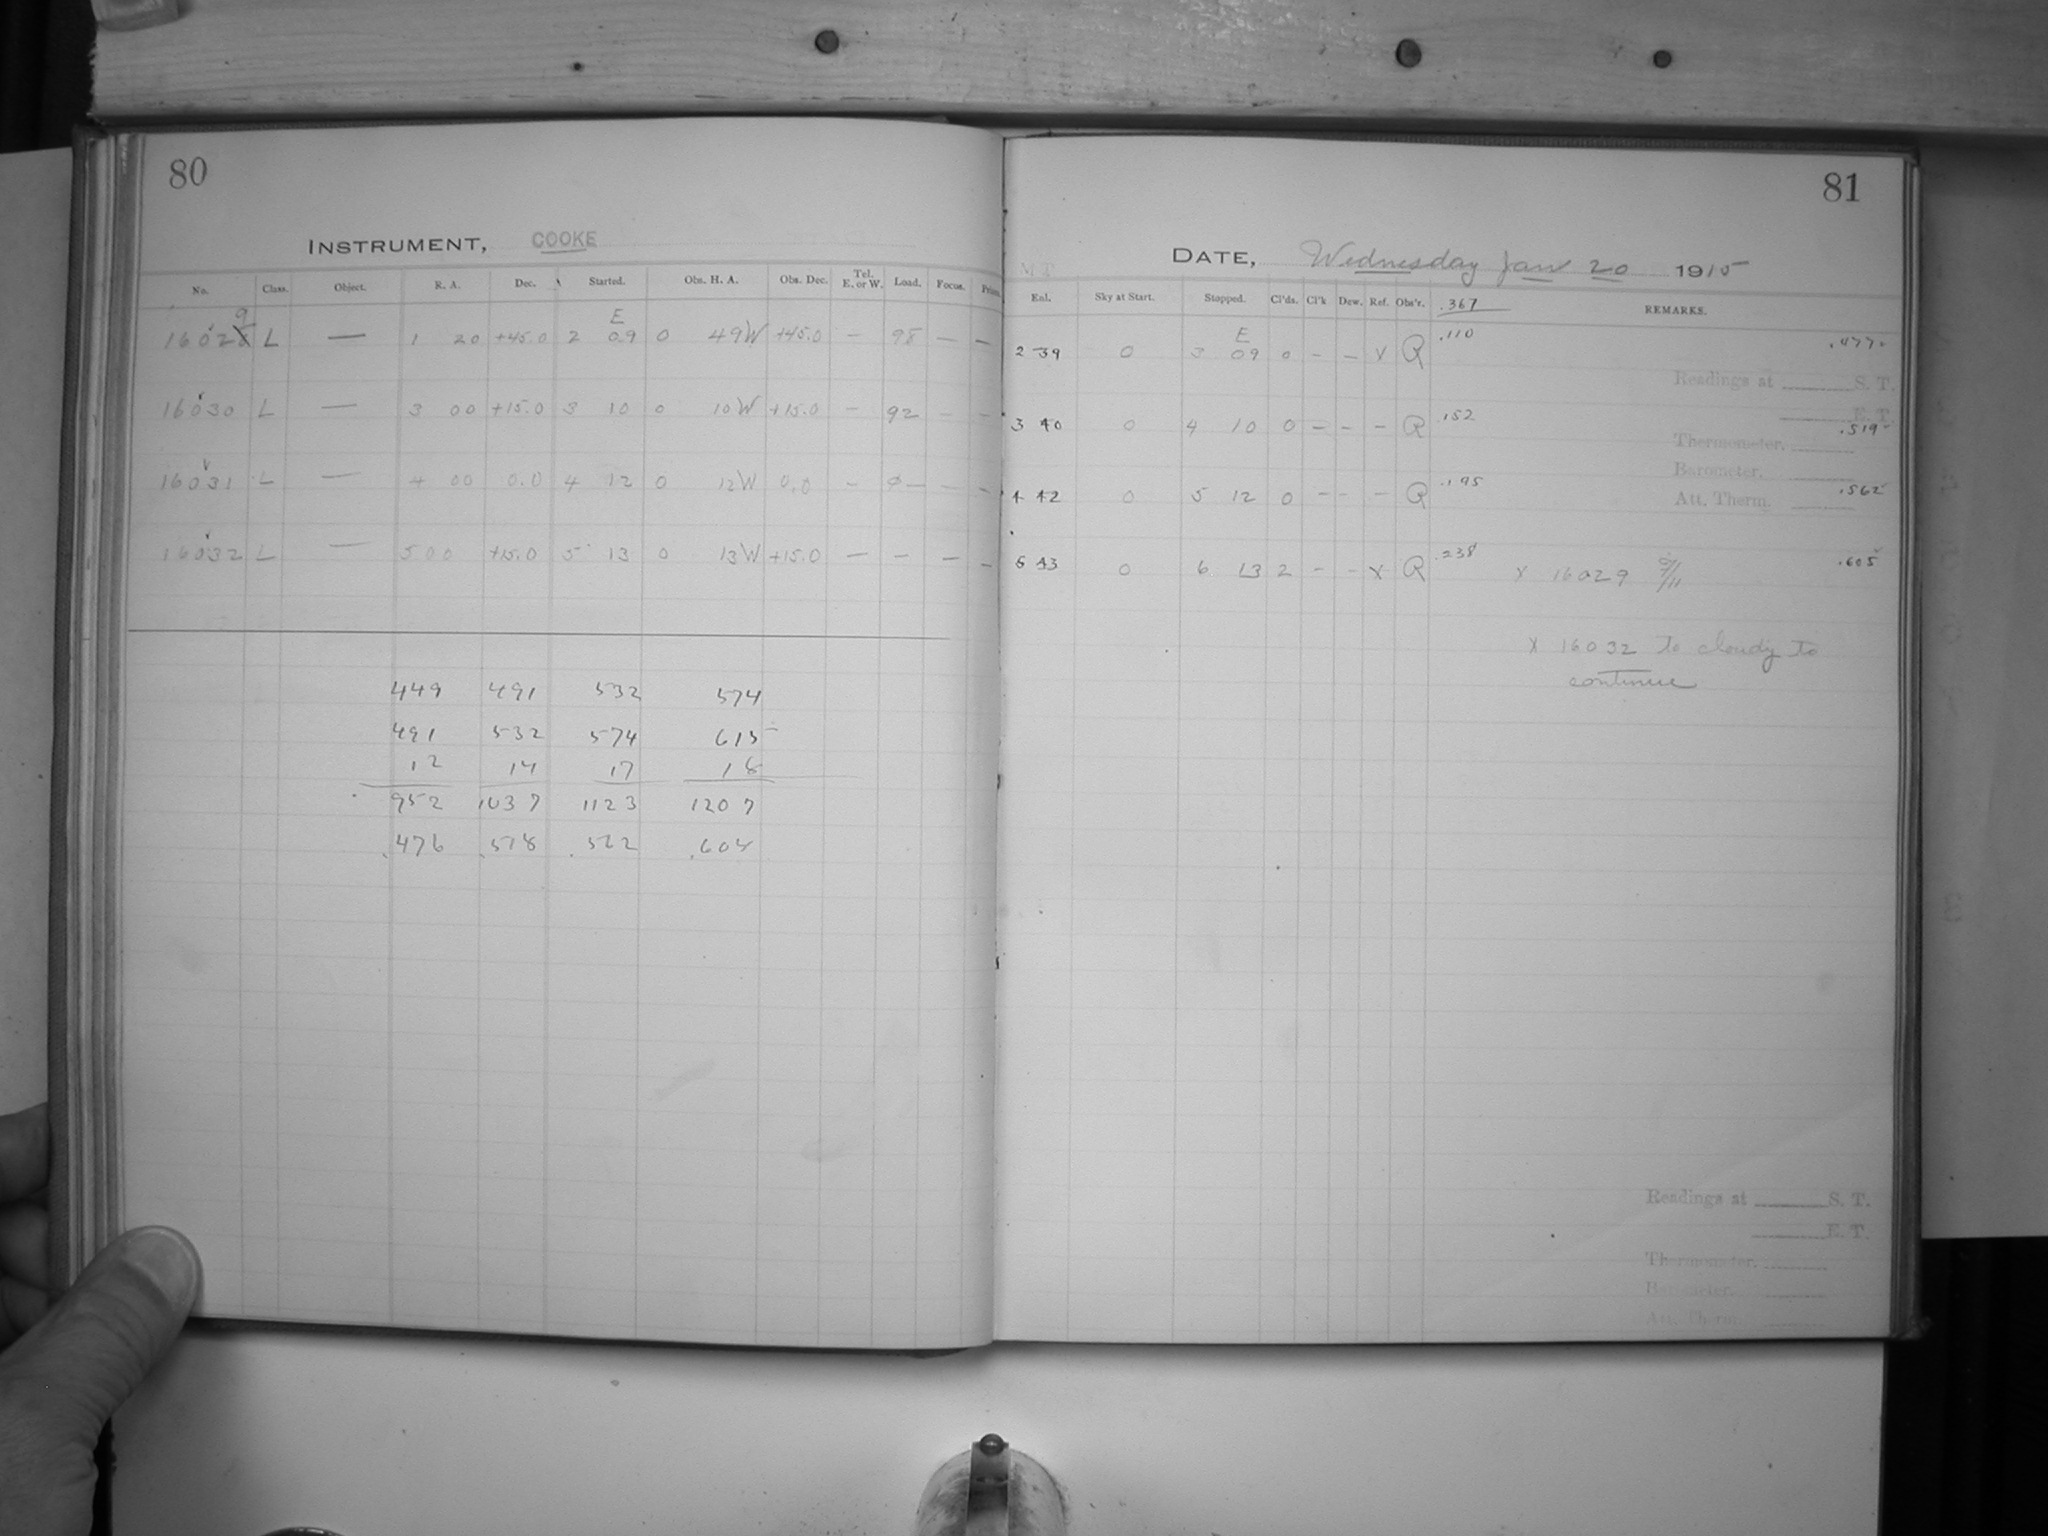 80
INSTRUMENT, COOKE
No. Class. Object. R. A. Dec. Started. Obs. H. A. Obs. Dec. Tel. E. or W. Load. Focus.
9
E
16028 L — 1 20 +45.0 2 09 0 49W +45.0 — 98 — —
16030 L — 3 00 +15.0 3 10 0 10W +15.0 — 92 — —
16031 L — 4 00 0.0 4 12 0 12W 0.0 — — —
16032 L — 5 00 +15.0 5 13 0 13W +15.0 — — — —
449 491 532 574
491 532 574 615
12 14 17 18
952 1037 1123 1207
.476 .518 .562 .604
81
DATE, Wednesday Jan 20 1915
M.T.
Enl. Sky at Start. Stopped. Cl'ds. Cl'k Dew. Ref. Obs'r. .367 REMARKS.
E
2 39 0 3 09 0 — — X R .110 .477
Readings at S. T.
E. T.
3 40 0 4 10 0 — — — R .152 .519
Thermometer.
Barometer.
4 42 0 5 12 0 — — — R .195 .562
Att. Therm.
5 43 0 6 13 2 — — X R .238 X 16029 .605
X 16032 To cloudy to
continue
Readings at S. T.
E. T.
Thermometer.
Barometer.
Att. Therm.